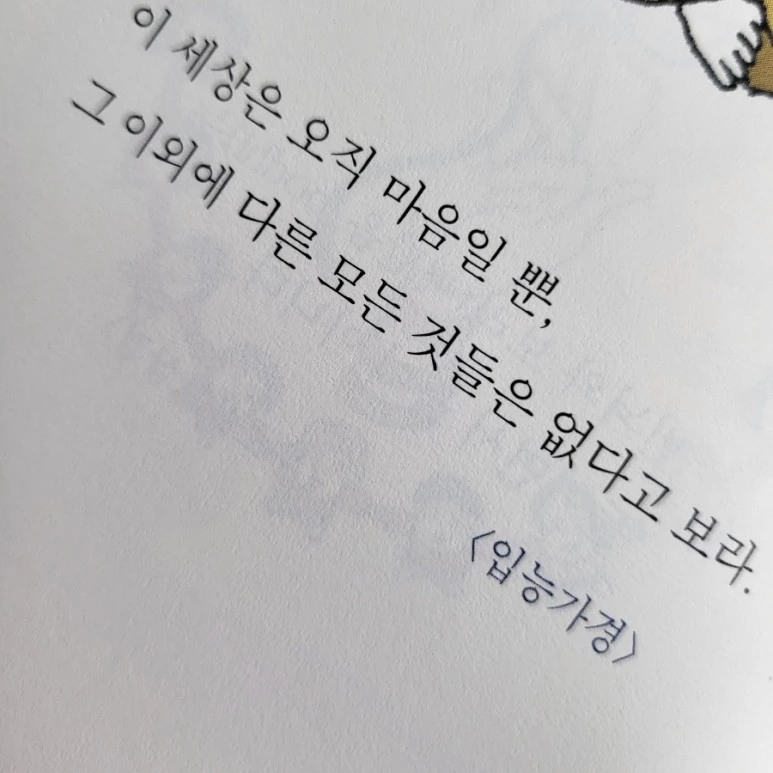 이 세상은 오직 마음일 뿐,
그 이외에 다른 모든 것들은 없다고 보라.
<입능가경>